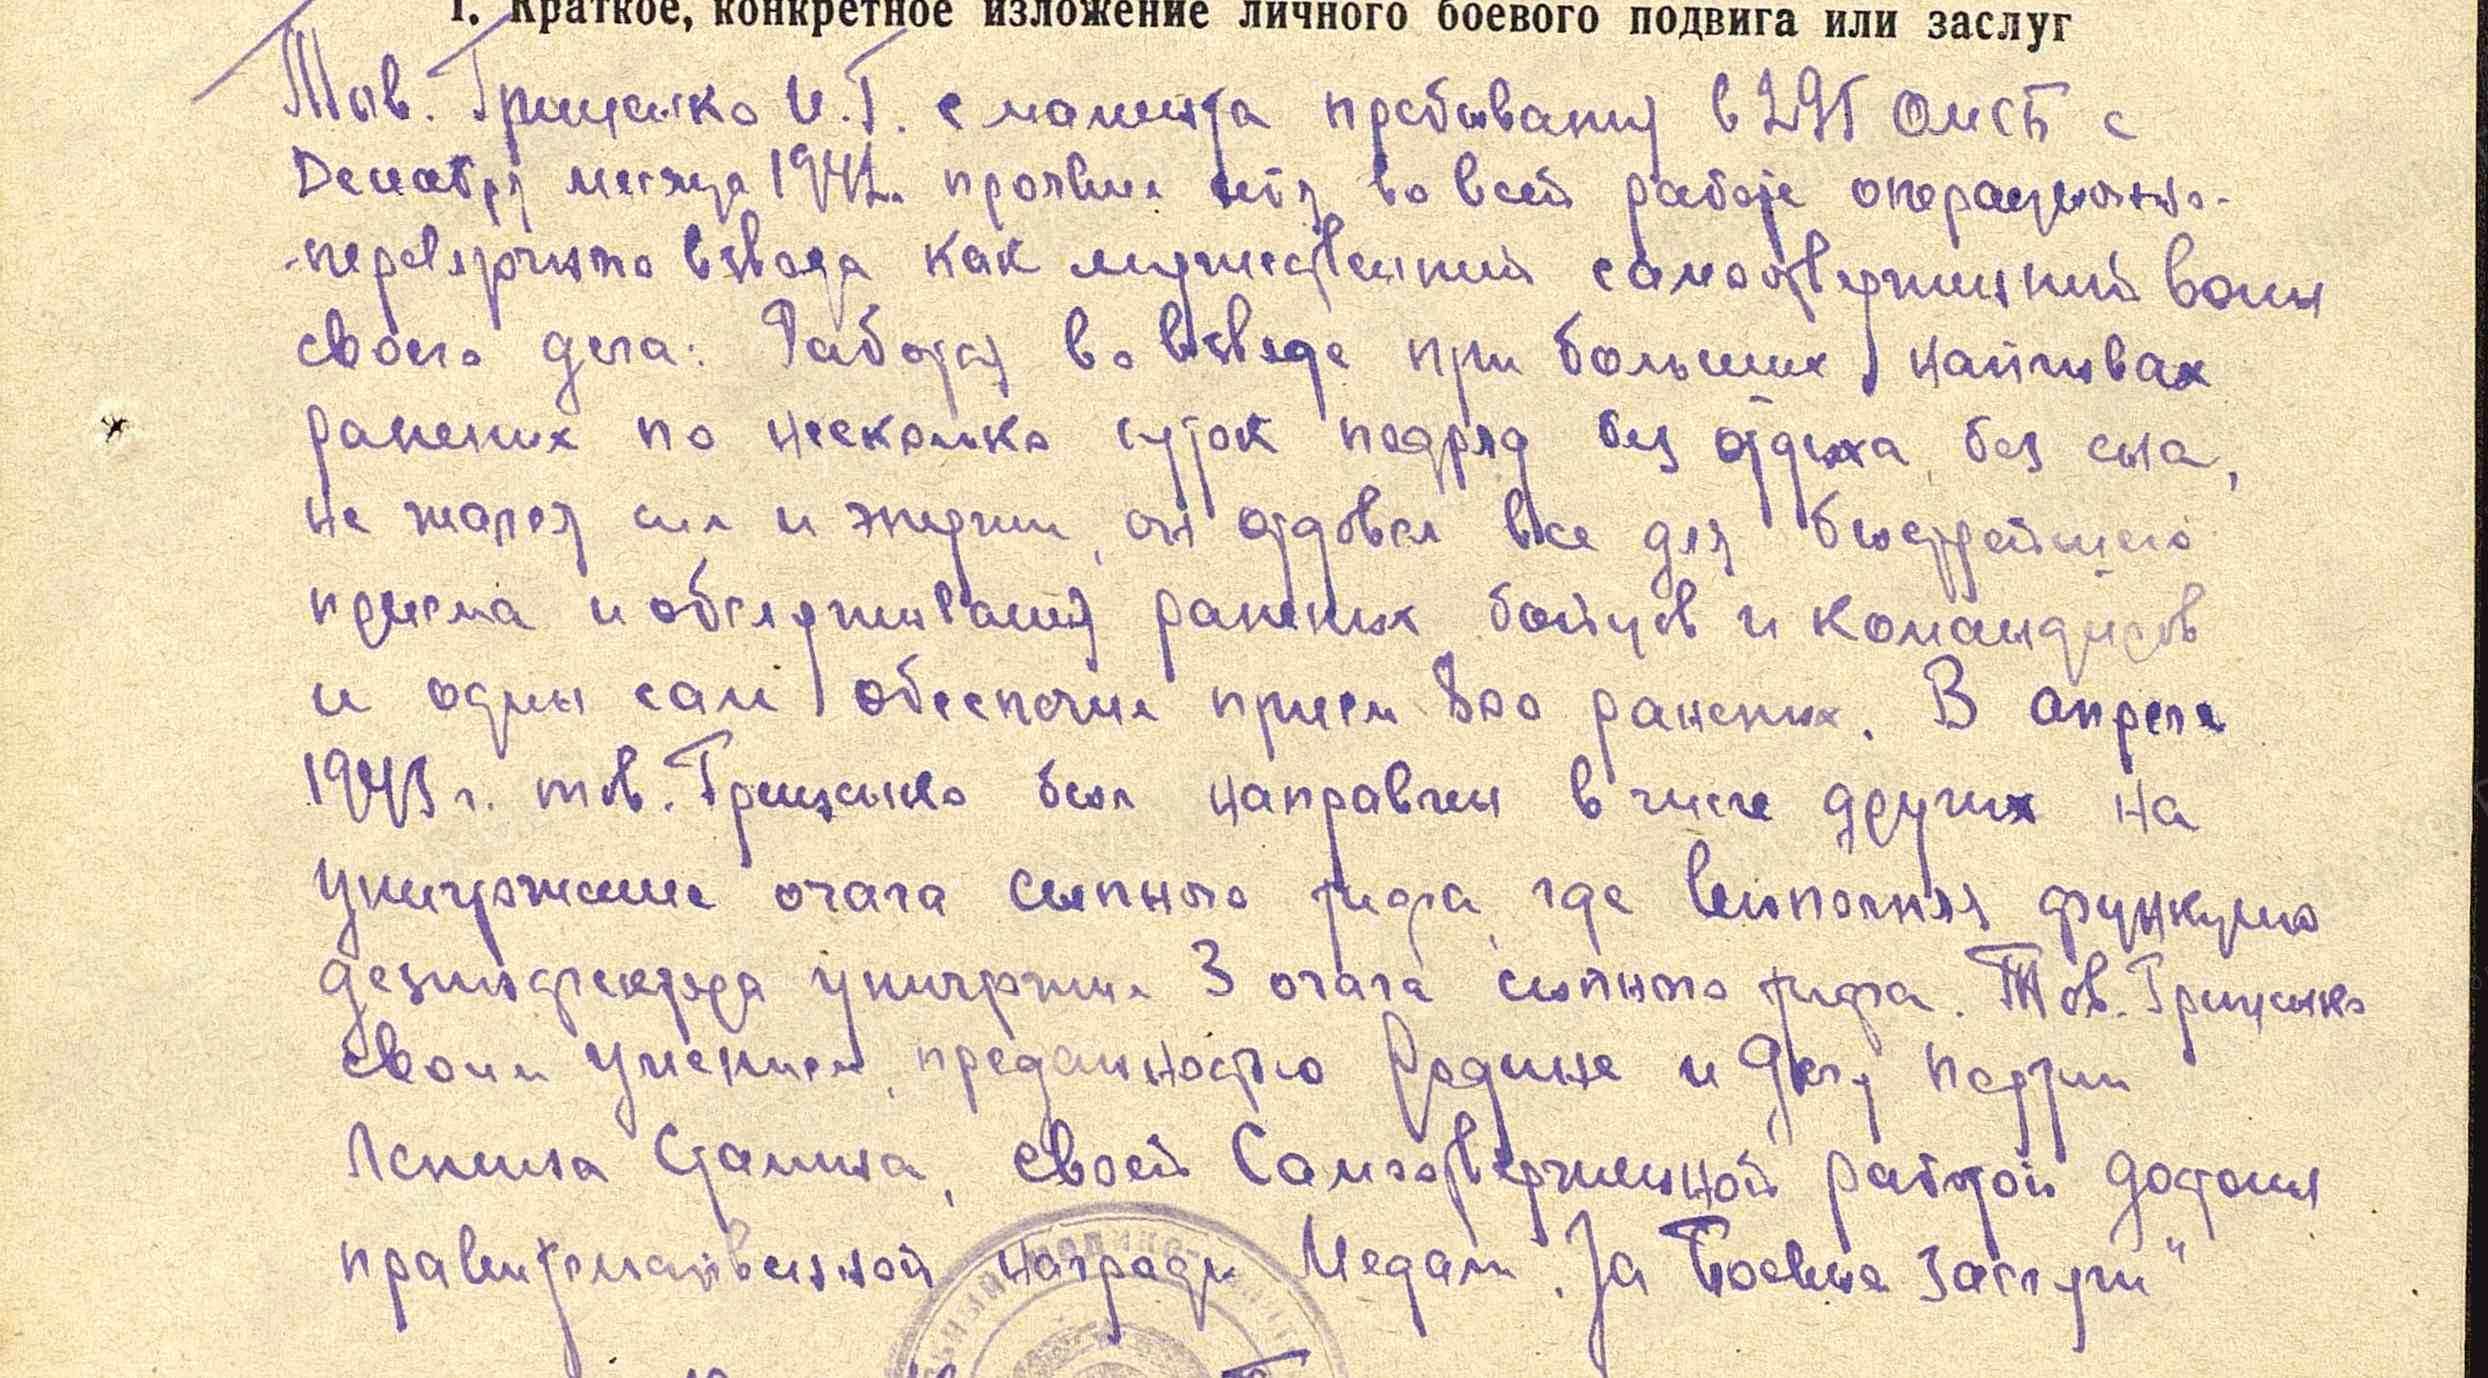 1. Краткое, конкретное изложение личного боевого подвига или заслуг
Тов. Грищенко И.Г. с момента пребывания в 295 ОМСБ с
Декабря месяца 1942г. проявил себя во всей работе операционно-
-перевязочного взвода как мужественный самоотверженный воин
своего дела: Работая во взводе при больших наплывах
раненых по несколько суток подряд без отдыха, без сна,
не жалея сил и энергии, он отдавал все для быстрейшего
приема и обслуживания раненых бойцов и командиров
и один сам обеспечил прием 800 раненых. В апреле
1943 г. тов. Грищенко был направлен в числе других на
уничтожение очага сыпного тифа, где выполняя функцию
дезинфектора уничтожил 3 очага сыпного тифа. Тов. Грищенко
своим умением, преданностью Родине и Делу партии
Ленина Сталина, своей Самоотверженной работой достоин
правительственной награды Медали "За Боевые Заслуги"